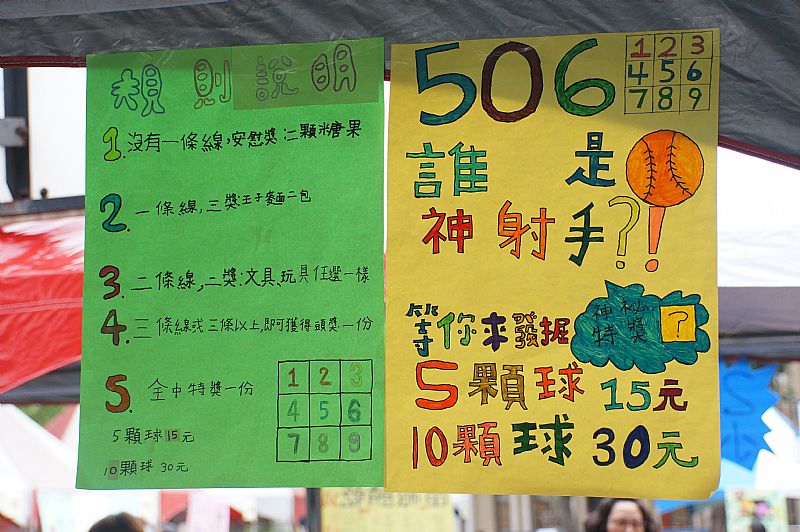 規則說明
1. 沒有一條線,安慰獎:二顆糖果
2. 一條線,三獎:王子麵二包
3. 二條線,二獎:文具、玩具任選一樣
4. 三條線或三條以上,即可獲得頭獎一份
5. 全中特獎一份
5顆球15元
10顆球 30元
1 2 3
4 5 6
7 8 9
506
1 2 3
4 5 6
7 8 9
誰是
神射手?!
等你來發掘
神秘
特獎
?
5顆球15元
10顆球30元